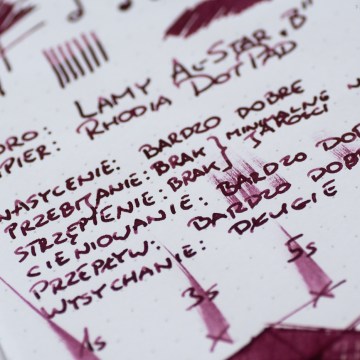 ÓRO: LAMY AL-STAR "B"
PIER: RHODIA DOTPAD
NASYCENIE: BARDZO DOBRE
PRZEBIJANIE: BRAK } MINIMALNE
STRZĘPIENIE: BRAK } JAKOŚCI
CIENIOWANIE: BARDZO DOB
PRZEPŁYW: BARDZO DOB
WYSYCHANIE: DŁUGIE
1s 3s 5s